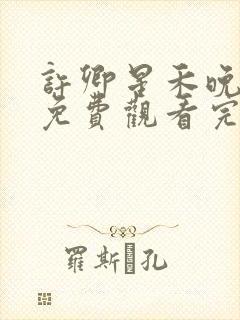 許卿星禾晚
免費觀看完
羅斯 孔